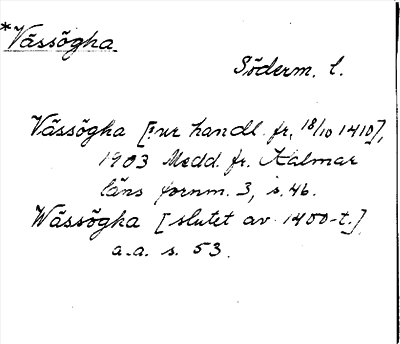 *Vässögha
Söderm. l.
Vässögha [: ur handl. fr. 18/10 1410],
1903 Medd. fr. Kalmar
läns fornm. 3, s. 46.
Wässögha [slutet av 1400-t.]
a.a. s. 53.